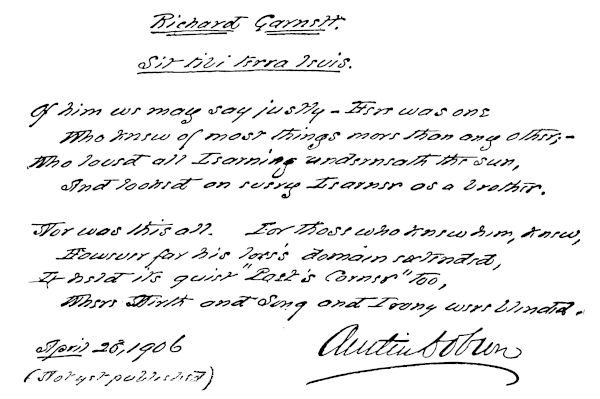 Richard Garnett.
Sit tibi terra levis.
Of him we may say justly – Here was one
Who knew of most things more than any other;–
Who loved all Learning underneath the sun,
And looked on every Learner as a brother.
Nor was this all. For those who knew him, knew,
However far his lore's domain extended,
It held its quiet "Poet's Corner" too,
Where Mirth and Song and Irony were blended.
April 28, 1906
Austin Dobson
(Not yet published)